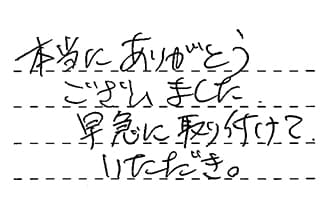 本当にありがとう
ございました
早急に取り付けて
いただき。